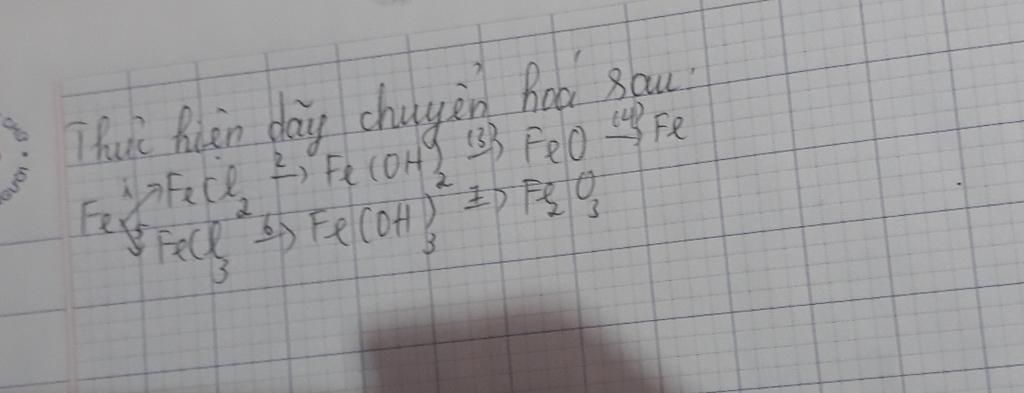 Thực hiện dãy chuyển hoá sau:
Fe 1→ FeCl2 2→ Fe(OH)2 (3)→ FeO (4)→ Fe
5 FeCl3 6→ Fe(OH)3 7→ Fe2O3